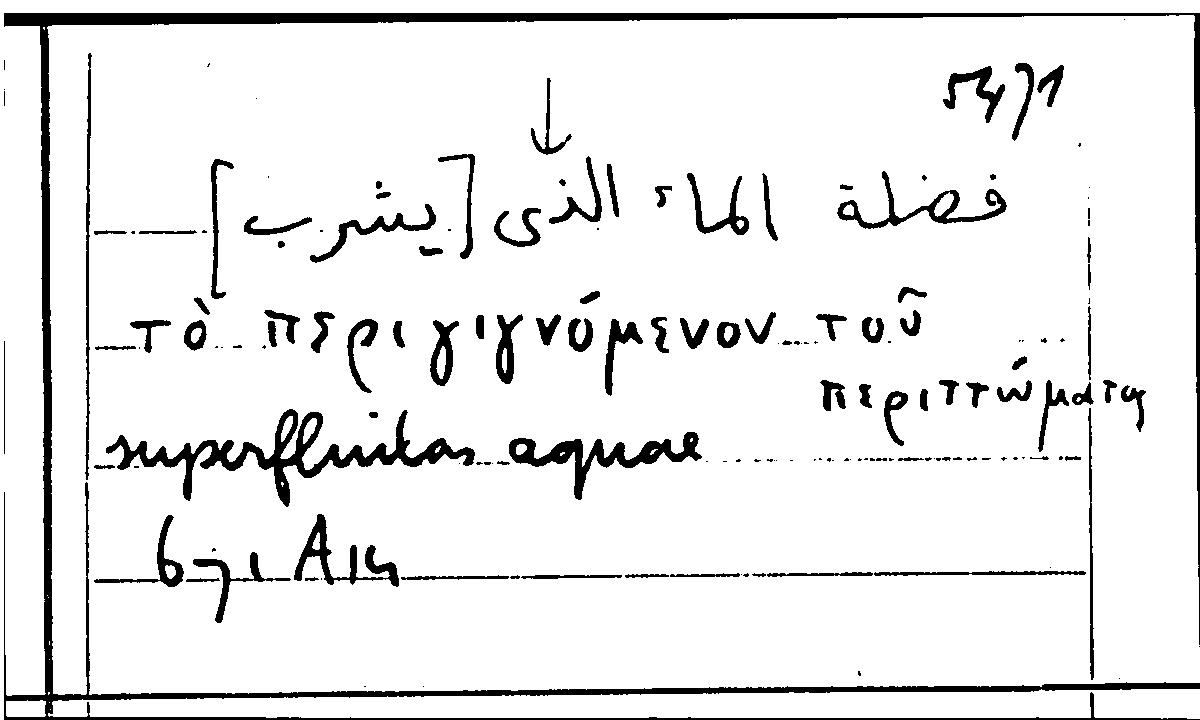 فضلة الماء الذى [يشرب]
τὸ περιγιγνόμενον τοῦ
περιττώματος
superfluitas aquae